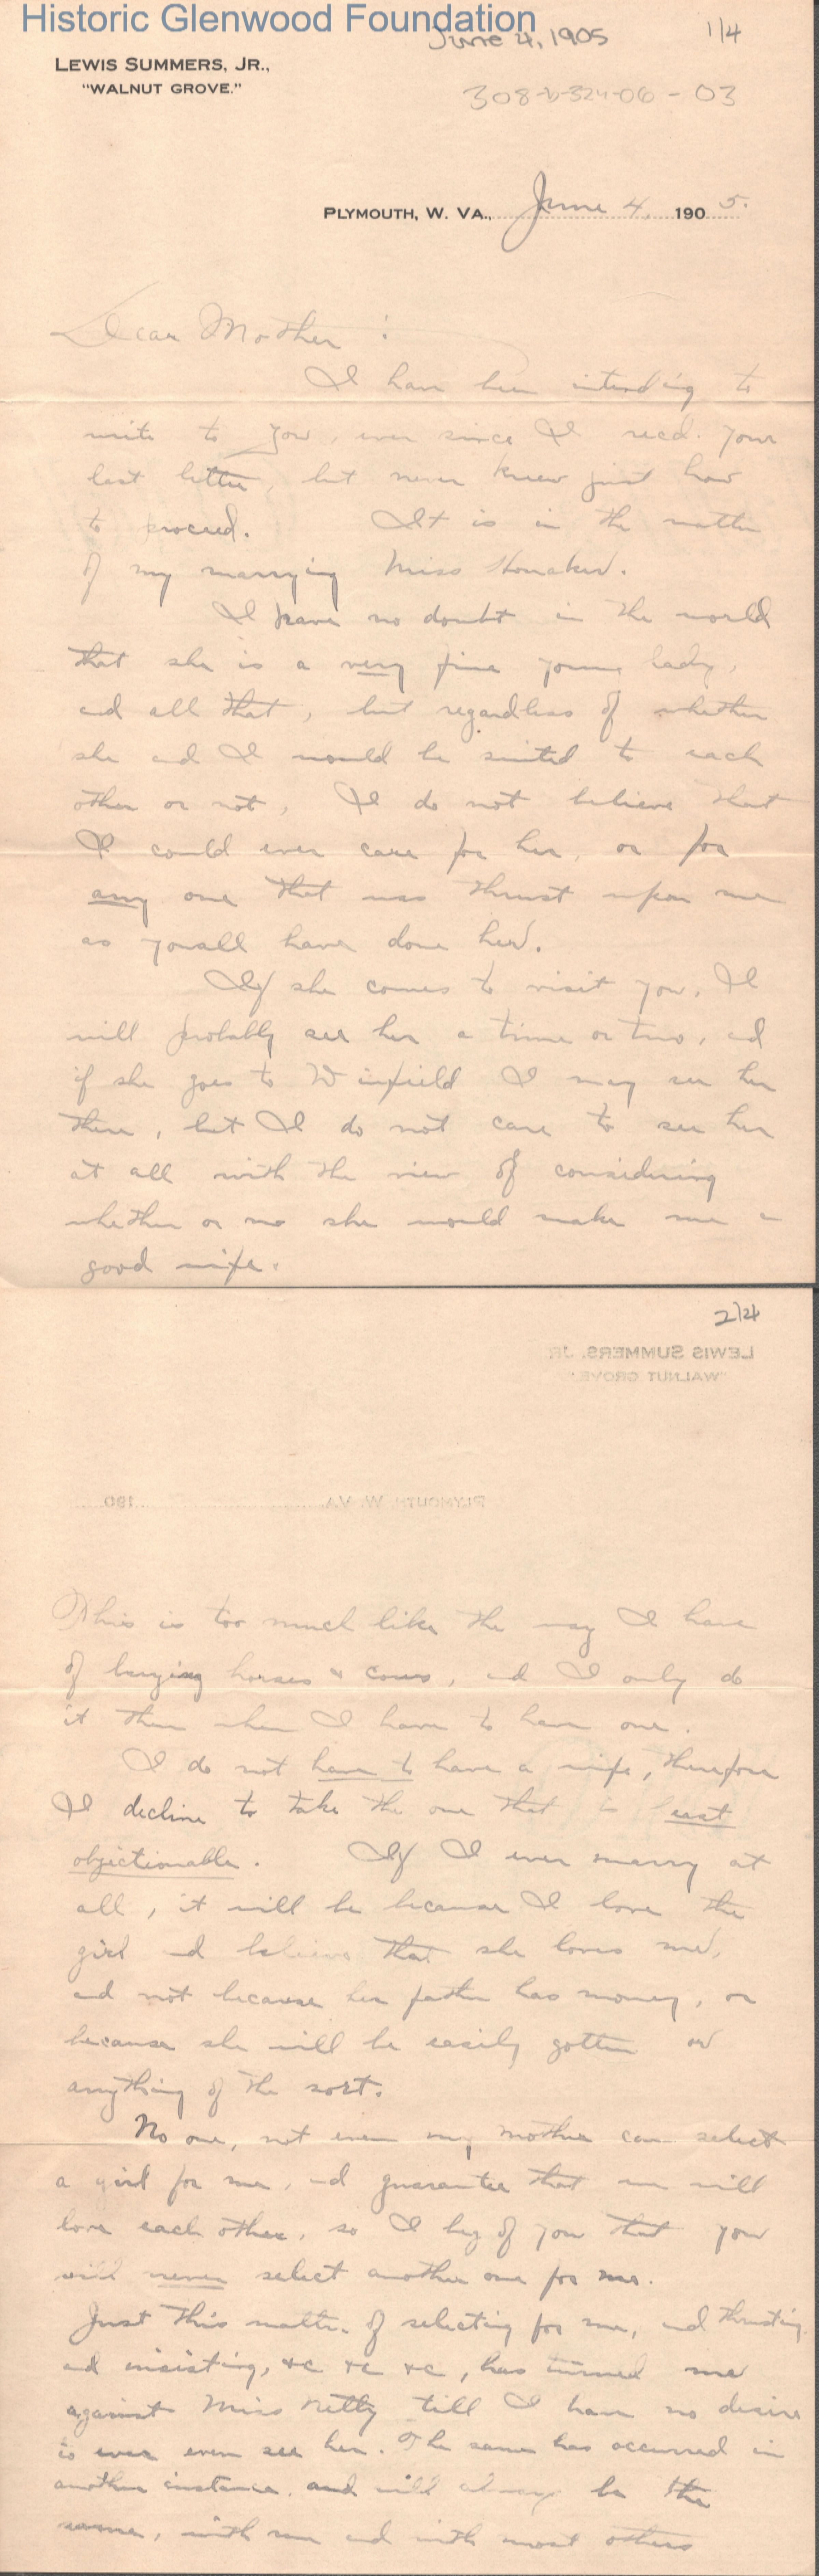 Historic Glenwood Foundation
June 4, 1905
1/4
LEWIS SUMMERS, JR.,
"WALNUT GROVE."
308-b-324-06-03
PLYMOUTH, W. VA., June 4, 1905.
Dear Mother :
I have been intending to
write to you, ever since I recd. your
last letter, but never knew just how
to proceed. It is in the matter
of my marrying Miss Honaker.
I have no doubt in the world
that she is a very fine young lady,
and all that, but regardless of whether
she and I would be suited to each
other or not, I do not believe that
I could ever care for her, or for
any one that was thrust upon me
as youall have done her.
If she comes to visit you, I
will probably see her a time or two, and
if she goes to Winfield I may see her
there, but I do not care to see her
at all with the view of considering
whether or no she would make me a
good wife.
2/4
LEWIS SUMMERS, JR.
"WALNUT GROVE."
PLYMOUTH, W. VA. 190
This is too much like the way I have
of buying horses & cows, and I only do
it then when I have to have one.
I do not have to have a wife, therefore
I decline to take the one that is least
objectionable. If I ever marry at
all, it will be because I love the
girl and believe that she loves me,
and not because her father has money, or
because she will be easily gotten or
anything of the sort.
No one, not even my mother can select
a girl for me, and guarantee that we will
love each other, so I beg of you that you
will never select another one for me.
Just this matter of selecting for me, and thrusting
and insisting, &c &c &c, has turned me
against Miss Netty till I have no desire
to ever even see her. The same has occurred in
another instance, and will always be the
same, with me and with most others